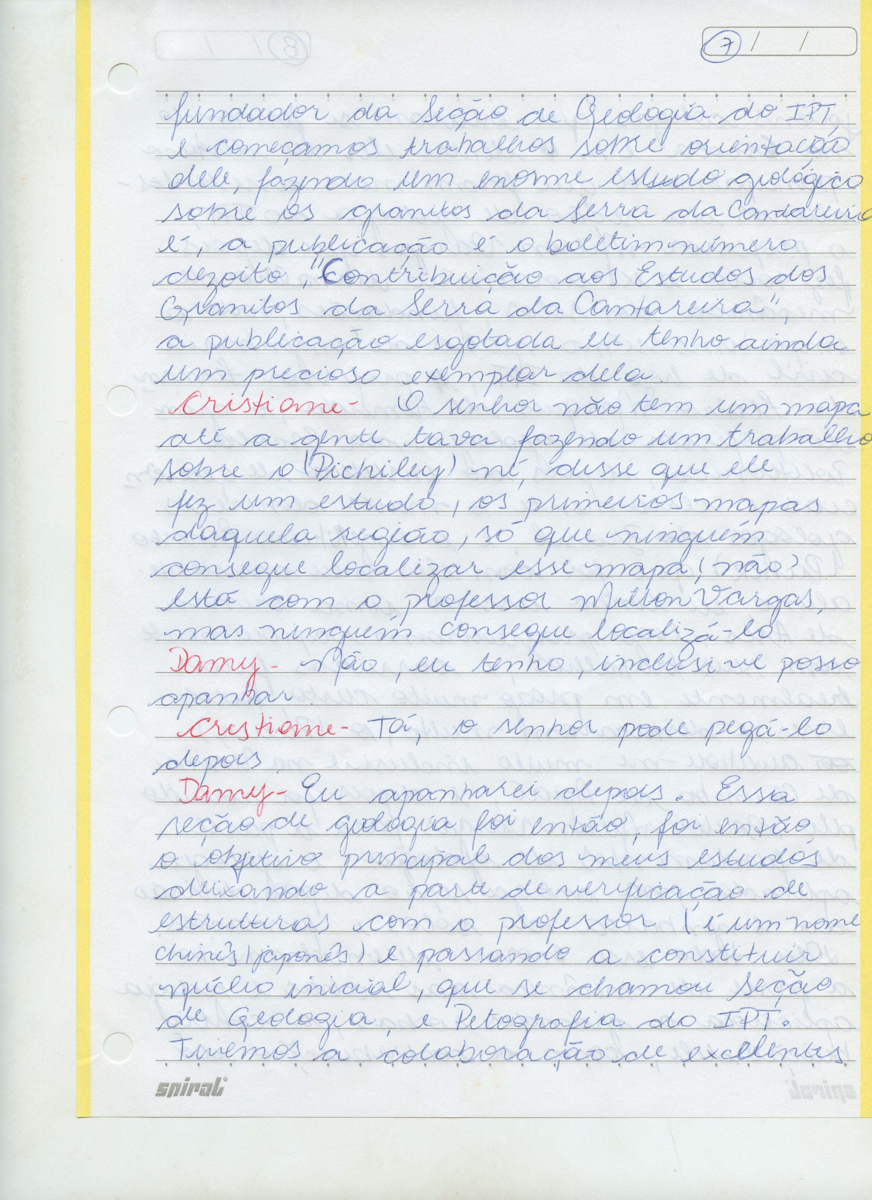 7 / /
fundador da Seção de Geologia do IPT,
e começamos trabalhos sobre orientação
dele, fazendo um enorme estudo geológico
sobre os granitos da Serra da Cantareira
é, a publicação é o boletim número
dezoito, "Contribuição aos Estudos dos
Granitos da Serra da Cantareira",
a publicação esgotada eu tenho ainda
um precioso exemplar dela
Cristiane- O senhor não tem um mapa
até a gente tava fazendo um trabalho
sobre o (Pichiley) né, disse que ele
fez um estudo, os primeiros mapas
daquela região, só que ninguém
consegue localizar esse mapa, (não)
está com o professor Milton Vargas,
mas ninguém consegue localizá-lo
Damy- Não, eu tenho, inclusive posso
apanhar.
Cristiane- Tá, o senhor pode pegá-lo
depois.
Damy- Eu apanharei depois. Essa
seção de geologia foi então, foi então
o objetivo principal dos meus estudos
deixando a parte de verificação de
estruturas com o professor (é um nome
chinês/japonês) e passando a constituir
núcleo inicial, que se chamou Seção
de Geologia, e Petografia do IPT.
Tivemos a colaboração de excelentes
spiral